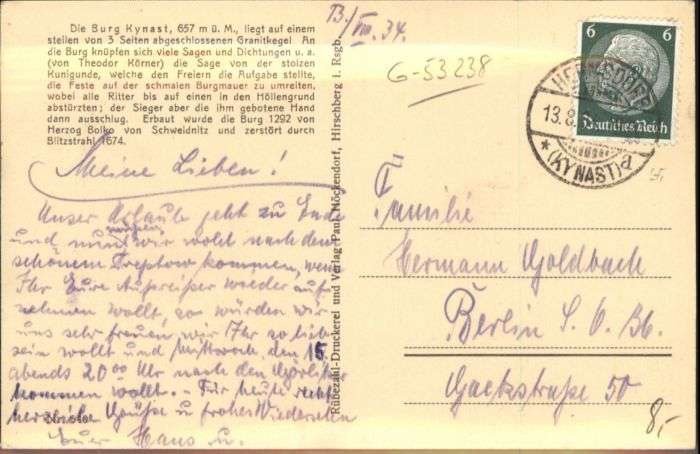 Die Burg Kynast, 657 m ü. M., liegt auf einem
steilen von 3 Seiten abgeschlossenen Granitkegel An
die Burg knüpfen sich viele Sagen und Dichtungen u. a.
(von Theodor Körner) die Sage von der stolzen
Kunigunde, welche den Freiern die Aufgabe stellte,
die Feste auf der schmalen Burgmauer zu umreiten,
wobei alle Ritter bis auf einen in den Höllengrund
abstürzten; der Sieger aber die ihm gebotene Hand
dann ausschlug. Erbaut wurde die Burg 1292 von
Herzog Bolko von Schweidnitz und zerstört durch
Blitzstrahl 1674.
Meine Lieben!
Unser Urlaub geht zu Ende
und nun müssen wir wohl nach dem
schönem Treptow kommen, wenn
Ihr Eure Aufpreiser wieder auf
nehmen wollt, so würden wir
uns sehr freuen, wir Ihr so lieb
sein wollt und Mittwoch, den 15.
abends 20 00 Uhr nach den
kommen wollt. - Für heute recht
herzliche Grüße u frohes Wiedersehen
Euer Hans u.
Rübezahl-Druckerei und Verlag Paul Höckendorf, Hirschberg i. Rsgb.
B./VIII. 34.
G-53238
6 6
Deutsches Reich
HERMSDORF
13.8.
* (KYNAST) a
Familie
Hermann Goldbach
Berlin S. O. 36.
Gackstraße 50
8,-